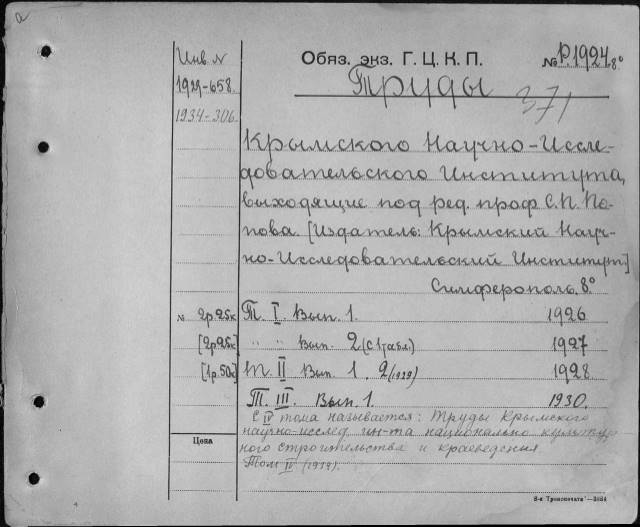 a
Инв. N
1929-658.
1934-306.
Обяз. экз. Г. Ц. К. П.
№ P.1924. 8°
Труды
371
Крымского Научно-Иссле-
довательского Института,
выходящие под ред. проф. С. П. По-
пова. [Издатель: Крымский Науч-
но-Исследовательский Институт]
Симферополь. 8°
№ 2р25к Т. I. Вып. 1. 1926
[2р25к] " " Вып. 2 (с 1 табл.) 1927
[1р.50к] Т. II Вып. 1. 2 (1929) 1928
Т. III. Вып. 1. 1930.
С IV тома называется: Труды Крымского
научно-исслед. ин-та национально культур
ного строительства и краеведения
Том IV (1934).
Цена
8-я Транспечати —3684